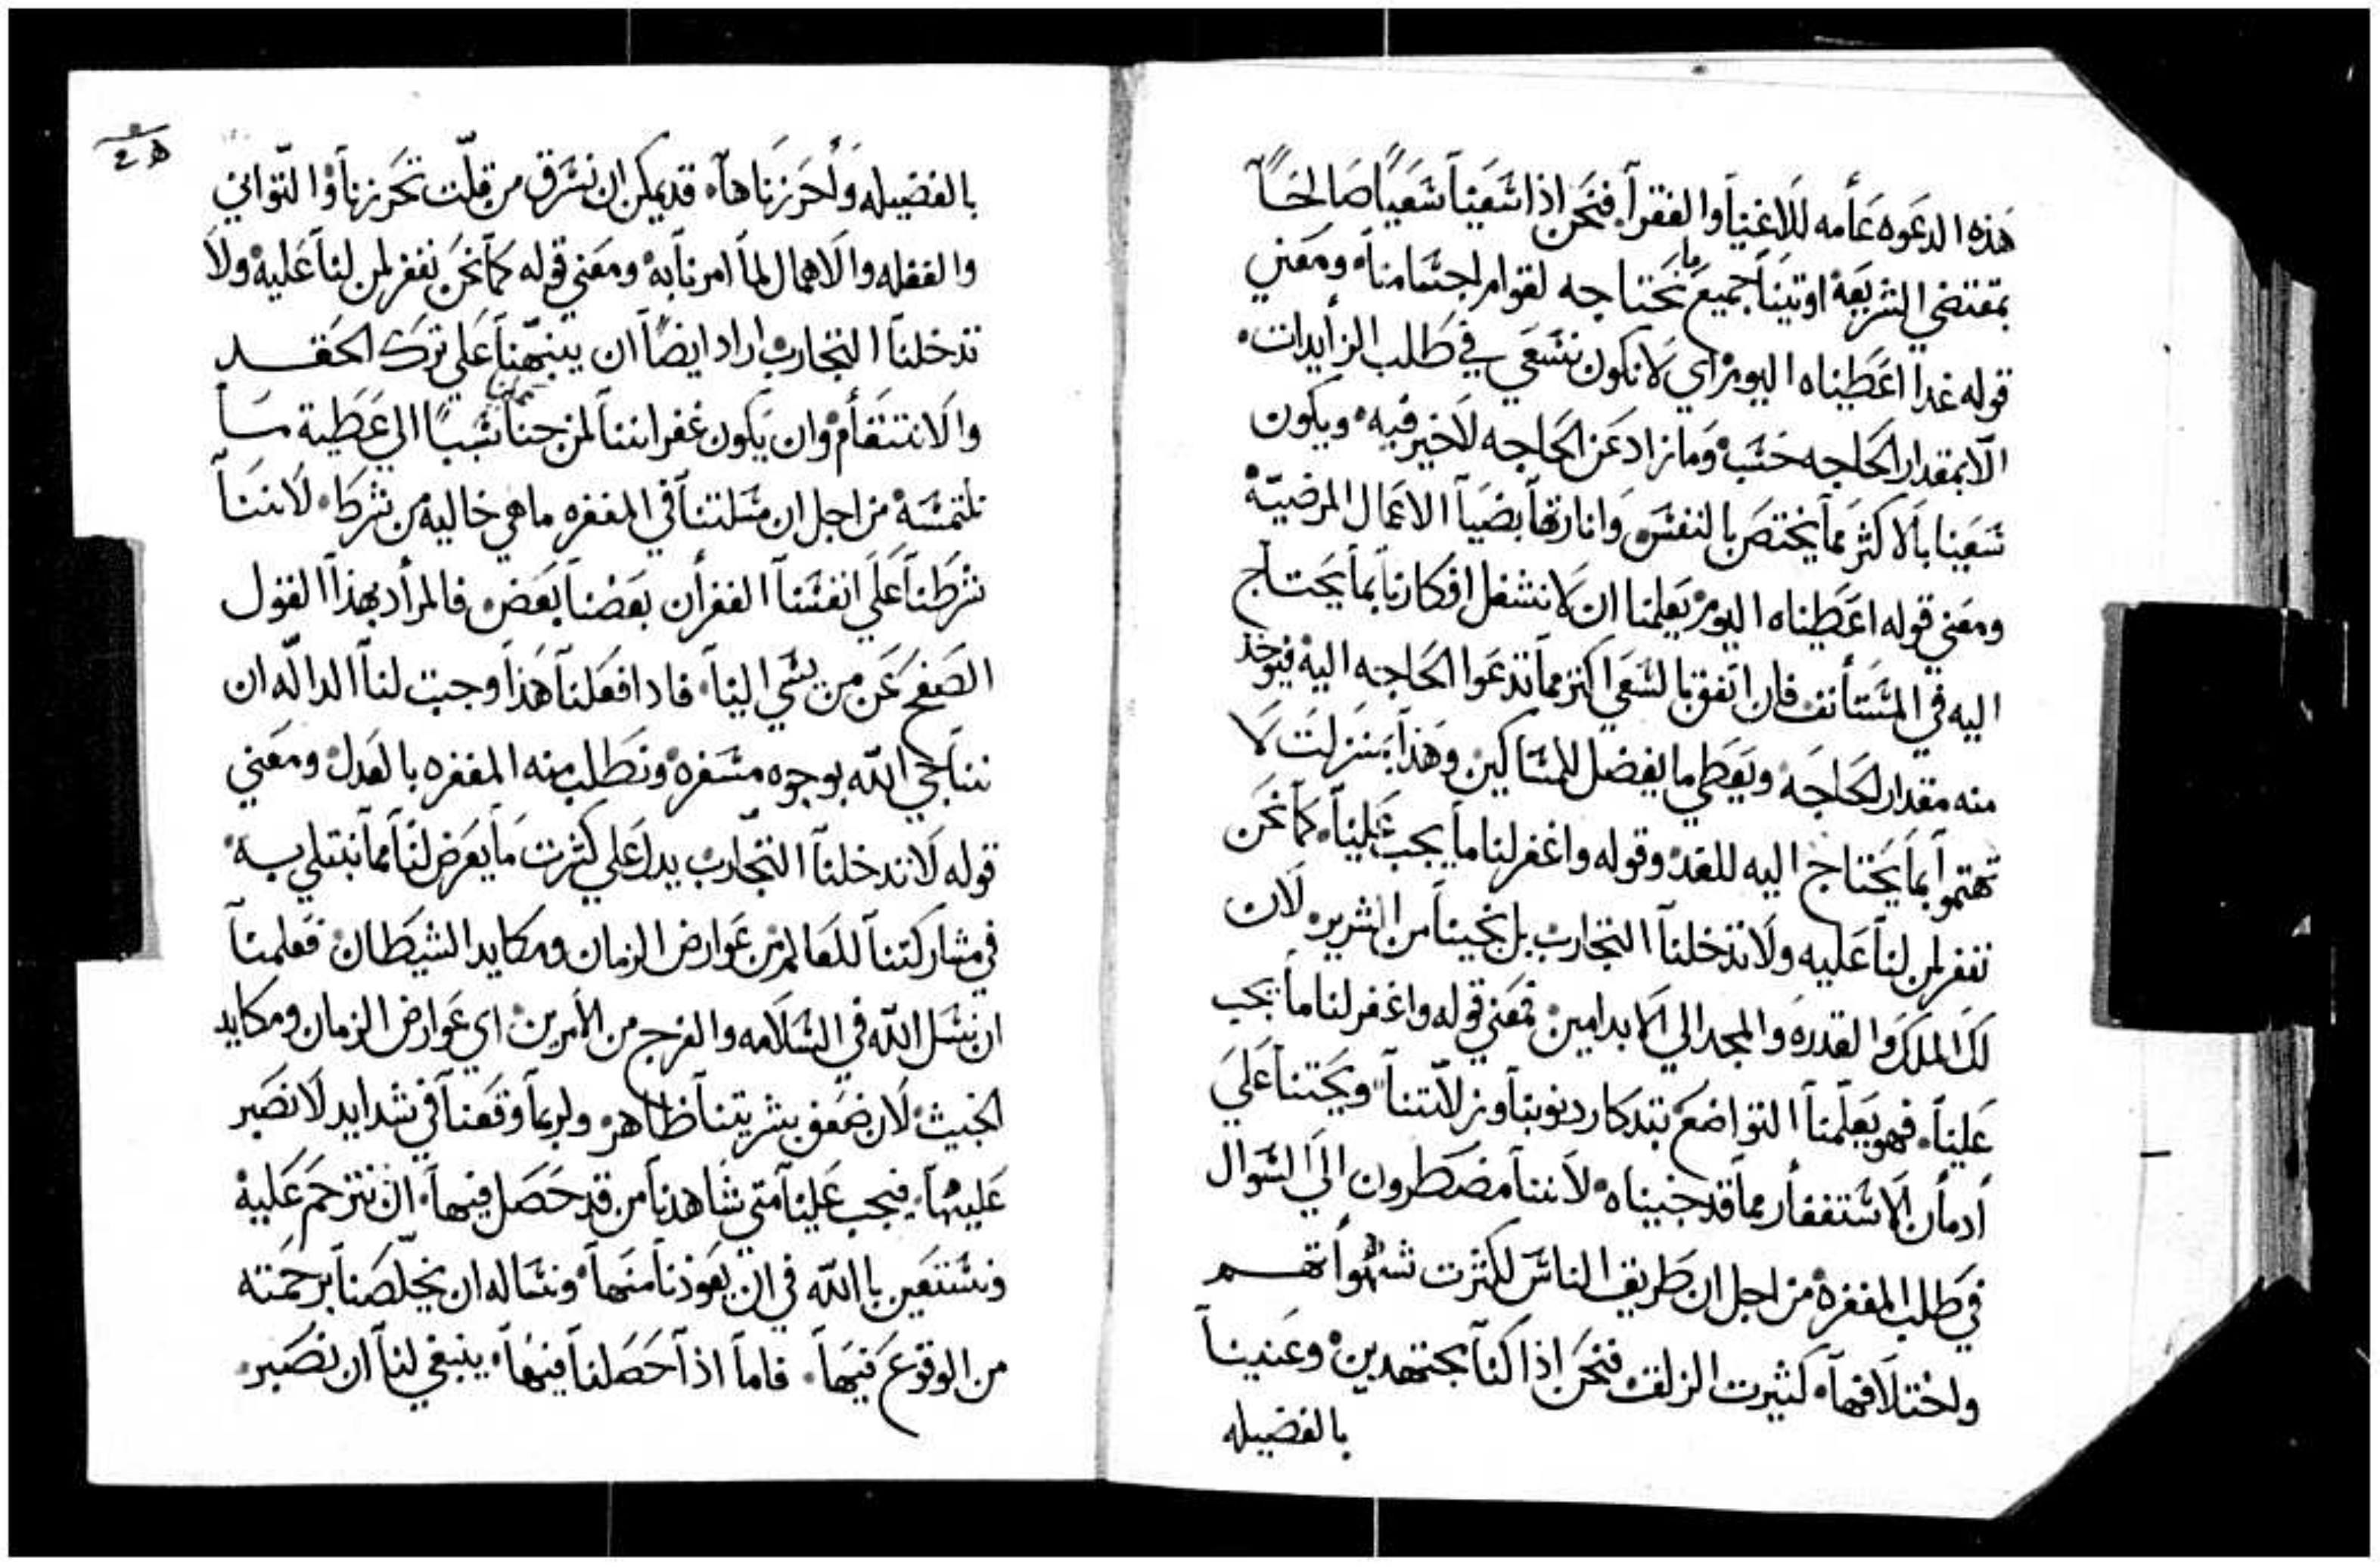 هذه الدعوه عامه للاغنيا والفقرا، فنحن اذا شعينا شعيًا صالحًا
بمقتضي الشريعة اوتينا جميع ما نحتاجه لقوام اجشامنا، ومعني
قوله غدا اعطيناه اليوم، اي لا نكون نشعي في طلب الزايدات،
الا بمقدار الحاجه حشب، وما زاد عن الحاجه لاخير فيه، ويكون
شعينا بالاكثر مما يختص بالنفش، وانارتها بضيا الاعمال المرضية
ومعني قوله اعطيناه اليوم، يعلمنا ان لا نشغل افكارنا بما يحتاج
اليه في المشتأنف، فان اتفق بالشعي اكثر مما تدعوا الحاجه اليه فيوخذ
منه مقدار الحاجه، ويعطي ما يفضل للمشاكين، وهذا بمنزلت لا
تهتموا بما يحتاج اليه للغد، وقوله واغفر لنا ما يجب علينا، كما نحن
نغفر لمن لنا عليه ولا تدخلنا التجارب، بل نجينا من الشرير، لان
لك الملك والقدره والمجد الي الابد امين، فمعني قوله واغفر لنا ما يجب
علينا، فهو يعلمنا التواضع بتدكار دنوبنا وزلاتنا، ويحتنا علي
ادمان الاشتغفار مما قد جنيناه، لاننا مضطرون الي الشوال
في طلب المغفره، من اجل ان طريف الناش لكثرت شهواتهم
واختلافها، كثيرت الزلف، فنحن اذا كنا مجتهدين، وعنينا
بالفضيله
بالفضيله واحرزناها، قد يمكن ان نشرق من قلت تحرزنا، والتواني
والغفله والاهمال لما امرنا به، ومعني قوله كما نحن نغفر لمن لنا عليه، ولا
تدخلنا التجارب، اراد ايضًا ان ينبهنا علي ترك الحقد
والانتقام، وان يكون غفراننا لمن جنا علينا شببًا الي عطية ما
نلتمشه، من اجل ان مشلتنا في المغفره ماهي خاليه من شرط، لاننا
شرطنا علي انفشنا الغفران بعضنا بعض، فالمراد بهذا القول
الصفح عن من يشي الينا، فادا فعلنا هذا وجبت لنا الداله ان
نناجي الله بوجوه مشفره، ونطلب منه المغفره بالعدل، ومعني
قوله لا تدخلنا التجارب، يدل علي كثرت ما يعرض لنا مما نبتلي به
في مشاركتنا للعالم، من عوارض الزمان ومكايد الشيطان، فعلمنا
ان نشل الله في الشلامه والفرج من الامرين، اي عوارض الزمان ومكايد
الخبيث، لان ضعف بشريتنا ظاهر، ولربما وقعنا في شدايد لا نصبر
عليها، فيجب علينا متي شاهدنا من قد حصل فيها، ان نترحم عليه
ونشتعين باالله في ان يعوذنا منها، ونشاله ان يخلصنا برحمته
من الوقوع فيها، فاما اذا حصلنا فيها، ينبغي لنا ان نصبر،